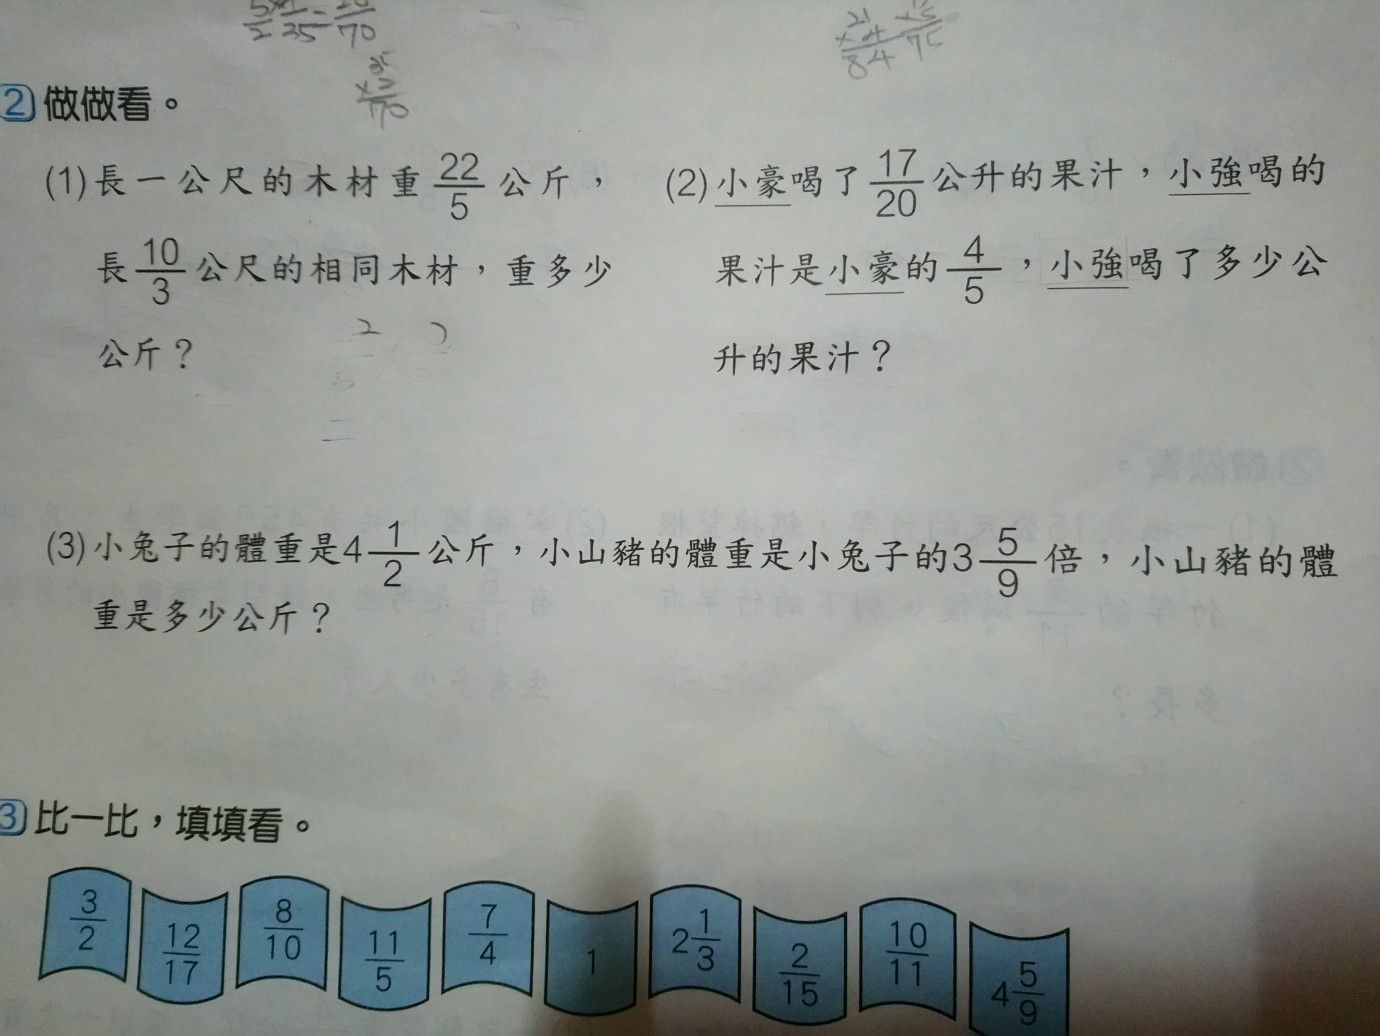 2 做做看。
(1)長一公尺的木材重 22/5 公斤，
長 10/3 公尺的相同木材，重多少
公斤？
(2)小豪喝了 17/20 公升的果汁，小強喝的
果汁是小豪的 4/5，小強喝了多少公
升的果汁？
(3)小兔子的體重是4 1/2 公斤，小山豬的體重是小兔子的3 5/9 倍，小山豬的體
重是多少公斤？
3 比一比，填填看。
3/2 12/17 8/10 11/5 7/4 1 2 1/3 2/15 10/11 4 5/9